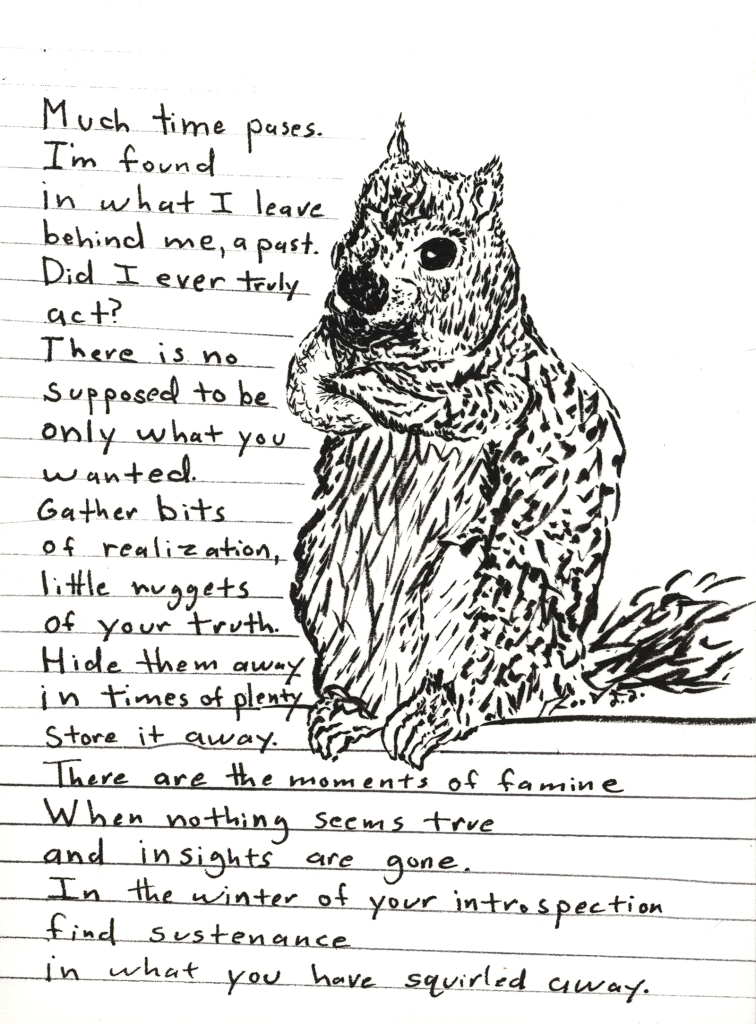 Much time pases.
I'm found
in what I leave
behind me, a past.
Did I ever truly
act?
There is no
supposed to be
only what you
wanted.
Gather bits
of realization,
little nuggets
of your truth.
Hide them away
in times of plenty
Store it away.
There are the moments of famine
When nothing seems true
and insights are gone.
In the winter of your introspection
find sustenance
in what you have squirled away.